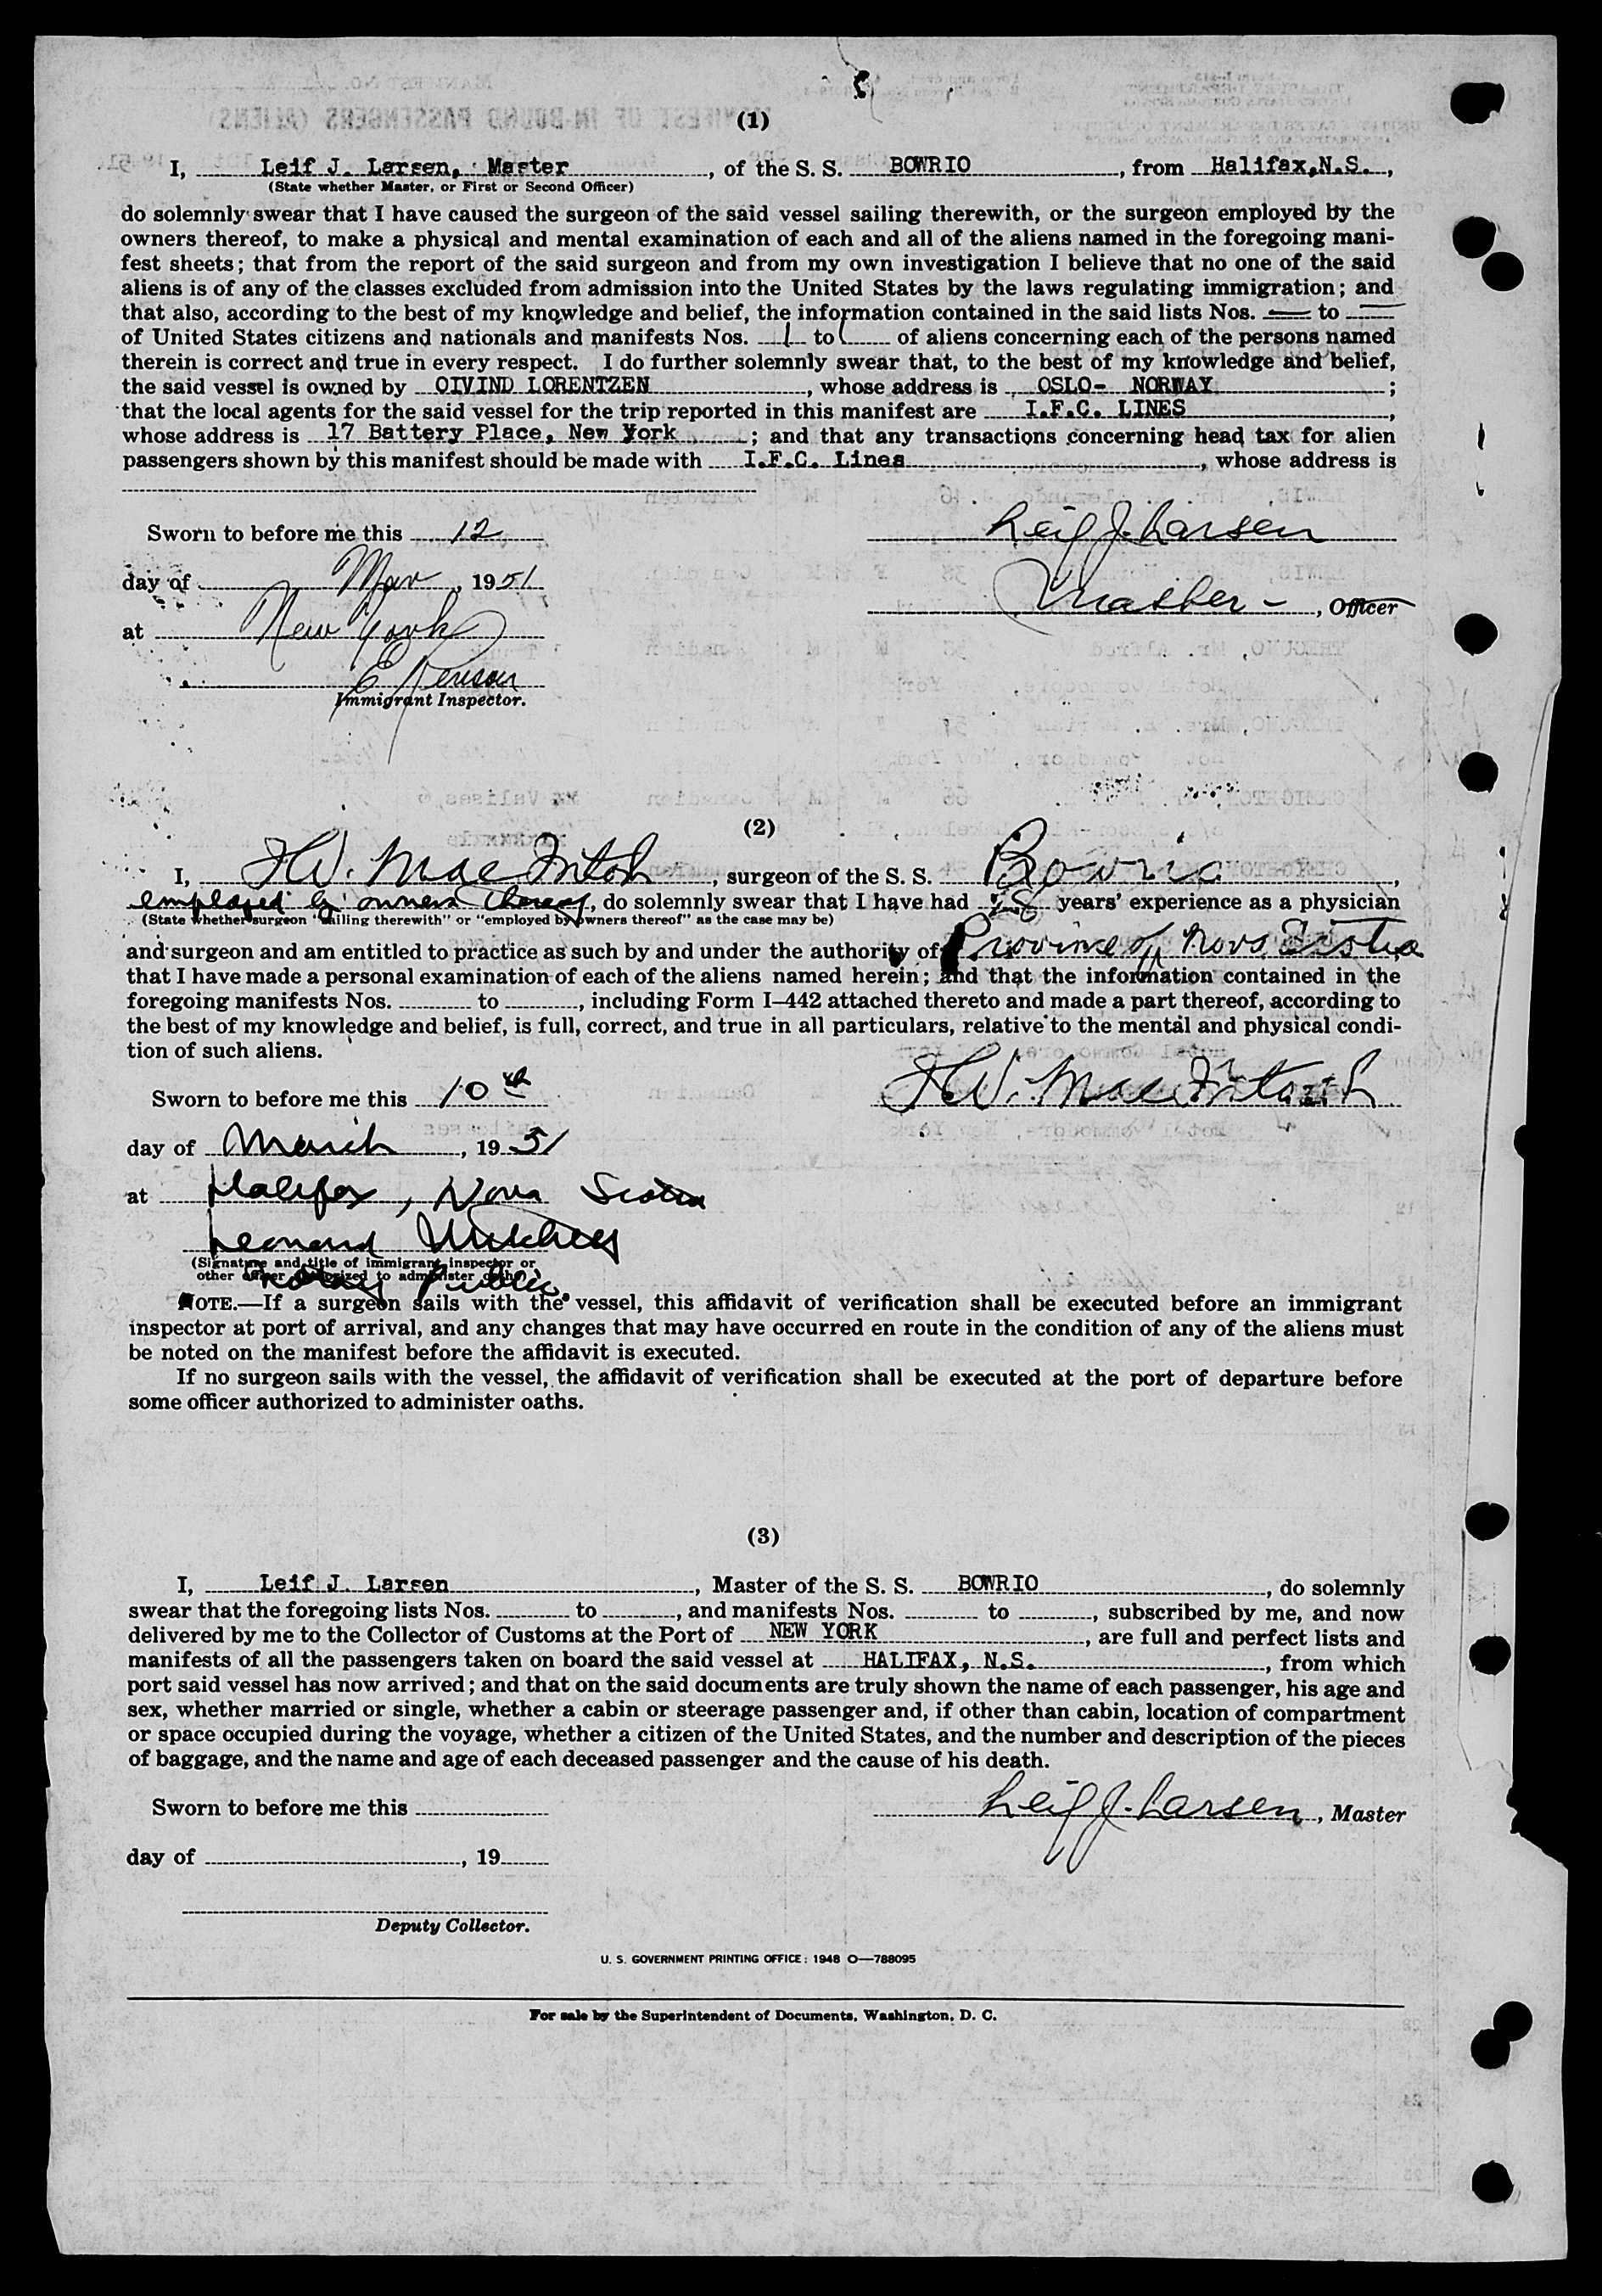 (1)
I, Leif J. Larsen, Master, of the S. S. BOWRIO, from Halifax,N.S.,
(State whether Master, or First or Second Officer)
do solemnly swear that I have caused the surgeon of the said vessel sailing therewith, or the surgeon employed by the
owners thereof, to make a physical and mental examination of each and all of the aliens named in the foregoing mani-
fest sheets; that from the report of the said surgeon and from my own investigation I believe that no one of the said
aliens is of any of the classes excluded from admission into the United States by the laws regulating immigration; and
that also, according to the best of my knowledge and belief, the information contained in the said lists Nos. — to —
of United States citizens and nationals and manifests Nos. 1 to 1 of aliens concerning each of the persons named
therein is correct and true in every respect. I do further solemnly swear that, to the best of my knowledge and belief,
the said vessel is owned by OIVIND LORENTZEN, whose address is OSLO- NORWAY;
that the local agents for the said vessel for the trip reported in this manifest are I.F.C. LINES,
whose address is 17 Battery Place, New York; and that any transactions concerning head tax for alien
passengers shown by this manifest should be made with I.F.C. Lines, whose address is
Sworn to before me this 12
Leif J. Larsen
day of Mar, 1951
Master -, Officer
at New York
Immigrant Inspector.
(2)
I, H.W. MacIntosh, surgeon of the S. S. Bowrio,
employed by owners thereof, do solemnly swear that I have had 28 years' experience as a physician
(State whether surgeon "sailing therewith" or "employed by owners thereof" as the case may be)
and surgeon and am entitled to practice as such by and under the authority of Province of Nova Scotia
that I have made a personal examination of each of the aliens named herein; and that the information contained in the
foregoing manifests Nos. to , including Form I-442 attached thereto and made a part thereof, according to
the best of my knowledge and belief, is full, correct, and true in all particulars, relative to the mental and physical condi-
tion of such aliens.
Sworn to before me this 10th
H.W. MacIntosh
day of March, 1951
at Halifax, Nova Scotia
Leonard Mitchell
(Signature and title of immigrant inspector or
other officer authorized to administer oaths)
Notary Public
NOTE.—If a surgeon sails with the vessel, this affidavit of verification shall be executed before an immigrant
inspector at port of arrival, and any changes that may have occurred en route in the condition of any of the aliens must
be noted on the manifest before the affidavit is executed.
If no surgeon sails with the vessel, the affidavit of verification shall be executed at the port of departure before
some officer authorized to administer oaths.
(3)
I, Leif J. Larsen, Master of the S. S. BOWRIO, do solemnly
swear that the foregoing lists Nos. to , and manifests Nos. to , subscribed by me, and now
delivered by me to the Collector of Customs at the Port of NEW YORK, are full and perfect lists and
manifests of all the passengers taken on board the said vessel at HALIFAX, N.S., from which
port said vessel has now arrived; and that on the said documents are truly shown the name of each passenger, his age and
sex, whether married or single, whether a cabin or steerage passenger and, if other than cabin, location of compartment
or space occupied during the voyage, whether a citizen of the United States, and the number and description of the pieces
of baggage, and the name and age of each deceased passenger and the cause of his death.
Sworn to before me this
Leif J. Larsen, Master
day of , 19
Deputy Collector.
U. S. GOVERNMENT PRINTING OFFICE: 1948 O—788095
For sale by the Superintendent of Documents, Washington, D. C.